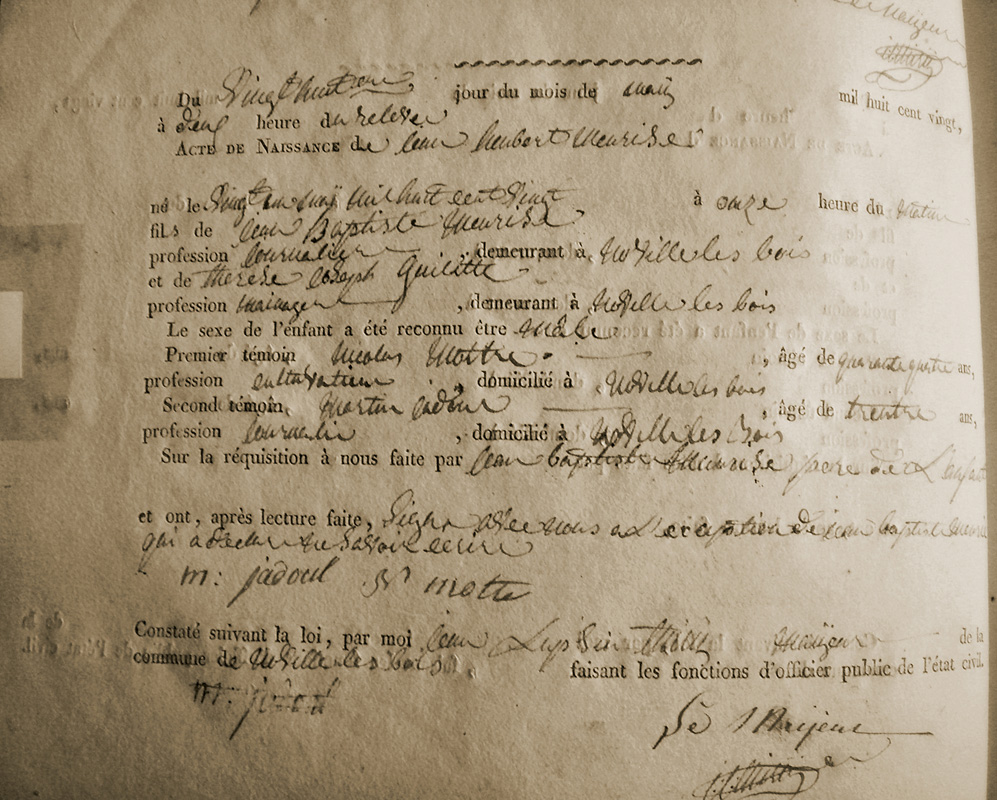 Du Vingt huit jour du mois de maÿ mil huit cent vingt,
à deux heure du relevée
ACTE DE NAISSANCE de Jean hubert Meurisse
né le Vingt maÿ mil huit cent Vingt à onze heure du matin
fils de Jean Baptiste Meurisse
profession Journalier, demeurant à Noville les bois
et de therese Joseph Guilotte
profession mainager, demeurant à Noville les bois
Le sexe de l'enfant a été reconnu être Male
Premier témoin Nicolas Motte, âgé de quarante quatre ans,
profession cultivateur, domicilié à Noville les bois
Second témoin, Martin Jadoul, âgé de trente ans,
profession Journalie, domicilié à Noville les Bois
Sur la réquisition à nous faite par Jean baptiste Meurisse pere de L'enfant
et ont, après lecture faite, Signe avec nous a L'exception de jean baptiste
qui a declare ne savoir ecrire
m: jadoul N motte
Constaté suivant la loi, par moi Jean maÿeur de la
commune de Noville les bois, faisant les fonctions d'officier public de l'état civil.
m: jadoul
Le Maÿeur